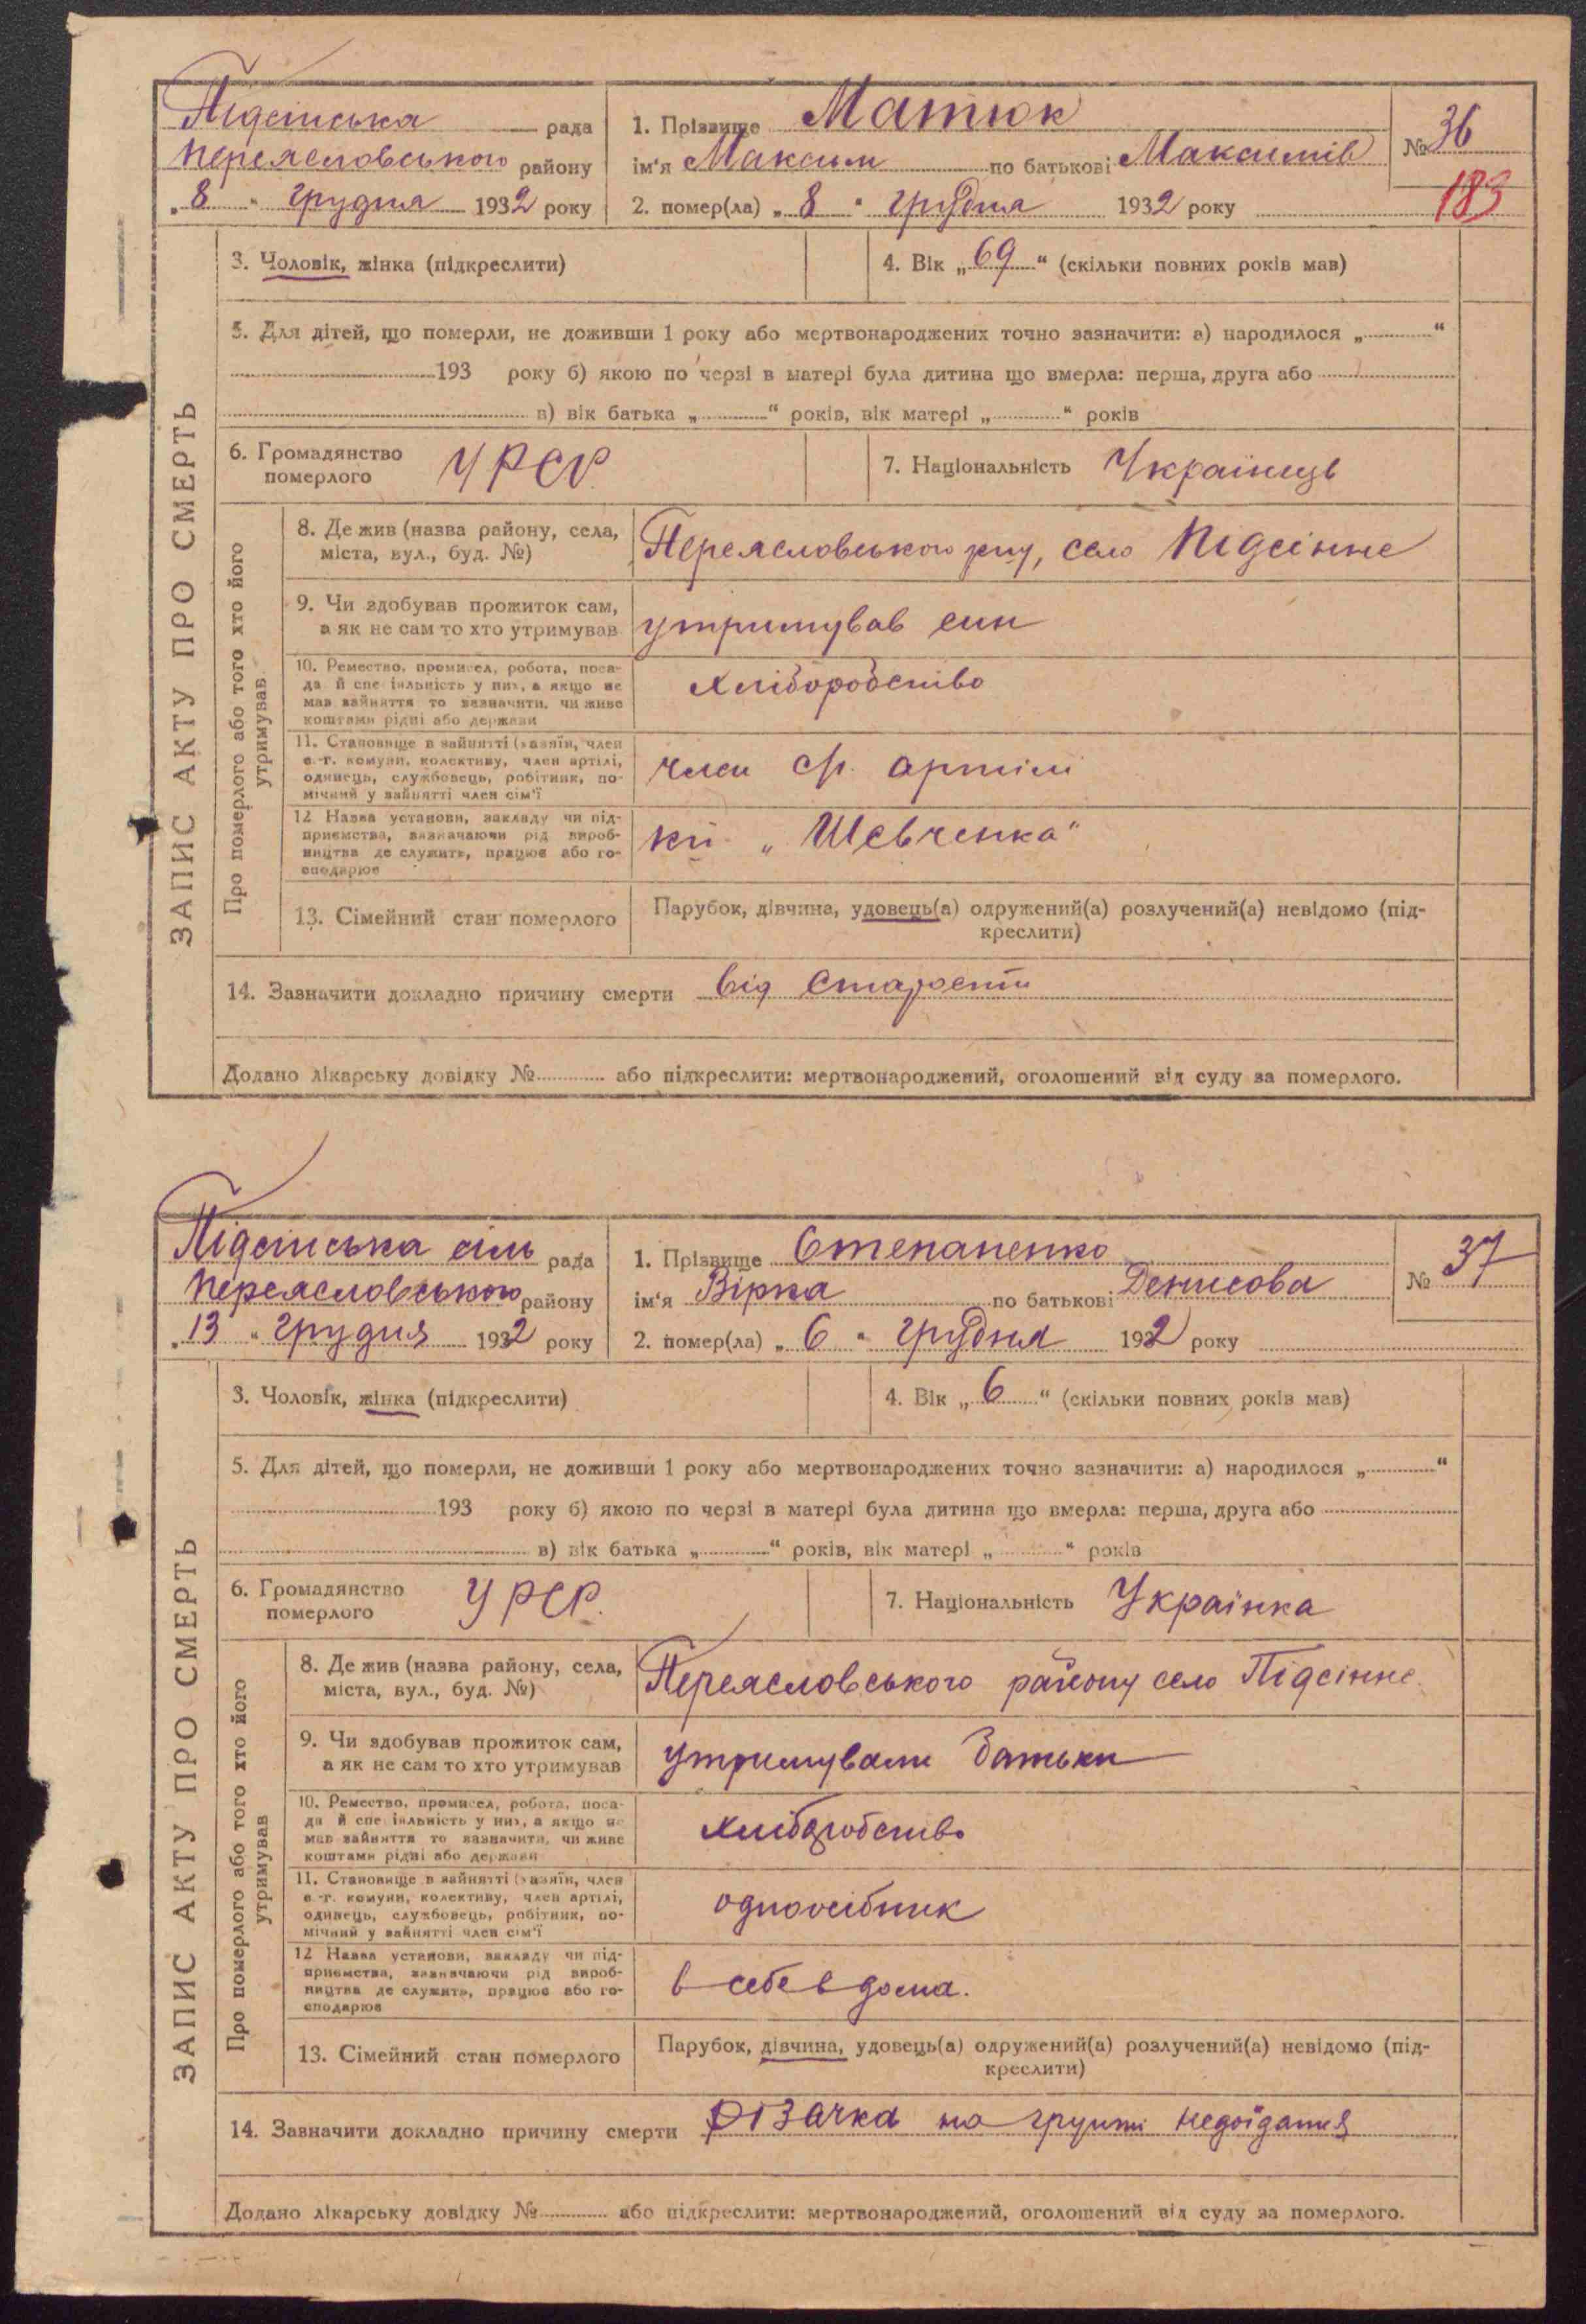 ЗАПИС АКТУ ПРО СМЕРТЬ
Підсінська рада
Переяславського району
„8“ грудня 1932 року
1. Прізвище Матюк
ім'я Максим по батькові Максимів
№ 36
183
2. помер(ла) „8“ грудня 1932 року
3. Чоловік, жінка (підкреслити)
4. Вік „69“ (скільки повних років мав)
5. Для дітей, що померли, не доживши 1 року або мертвонароджених точно зазначити: а) народилося „ “
193 року б) якою по черзі в матері була дитина що вмерла: перша, друга або
в) вік батька „ “ років, вік матері „ “ років
6. Громадянство померлого УРСР.
7. Національність Українець
Про померлого або того хто його утримував
8. Де жив (назва району, села,
міста, вул., буд. №)
Переяславського р-ну, село Підсінне
9. Чи здобував прожиток сам,
а як не сам то хто утримував
утримував син
10. Ремество, промисел, робота, поса-
да й спеціяльність у них, а якщо не
мав зайняття то зазначити, чи живе
коштами рідні або держави
хліборобство
11. Становище в зайнятті (хазяїн, член
с.-г. комуни, колективу, член артілі,
одинець, службовець, робітник, по-
мічний у зайнятті член сім'ї
член с/г. артілі
12 Назва установи, закладу чи під-
приємства, зазначаючи рід вироб-
ництва де служить, працює або го-
сподарює
„Шевченка“
13. Сімейний стан померлого
Парубок, дівчина, удовець(а) одружений(а) розлучений(а) невідомо (під-
креслити)
14. Зазначити докладно причину смерти від старости
Додано лікарську довідку № або підкреслити: мертвонароджений, оголошений від суду за померлого.
ЗАПИС АКТУ ПРО СМЕРТЬ
Підсінська сіль рада
Переяславського району
„13“ грудня 1932 року
1. Прізвище Степаненко
ім'я Вірка по батькові Денисова
№ 37
2. помер(ла) „6“ грудня 1932 року
3. Чоловік, жінка (підкреслити)
4. Вік „6“ (скільки повних років мав)
5. Для дітей, що померли, не доживши 1 року або мертвонароджених точно зазначити: а) народилося „ “
193 року б) якою по черзі в матері була дитина що вмерла: перша, друга або
в) вік батька „ “ років, вік матері „ “ років
6. Громадянство померлого УРСР.
7. Національність Українка
Про померлого або того хто його утримував
8. Де жив (назва району, села,
міста, вул., буд. №)
Переяславського району село Підсінне.
9. Чи здобував прожиток сам,
а як не сам то хто утримував
утримували батьки
10. Ремество, промисел, робота, поса-
да й спеціяльність у них, а якщо не
мав зайняття то зазначити, чи живе
коштами рідні або держави
хліборобство
11. Становище в зайнятті (хазяїн, член
с.-г. комуни, колективу, член артілі,
одинець, службовець, робітник, по-
мічний у зайнятті член сім'ї
одноосібник
12 Назва установи, закладу чи під-
приємства, зазначаючи рід вироб-
ництва де служить, працює або го-
сподарює
в себе вдома.
13. Сімейний стан померлого
Парубок, дівчина, удовець(а) одружений(а) розлучений(а) невідомо (під-
креслити)
14. Зазначити докладно причину смерти різачка на грунті недоїдання
Додано лікарську довідку № або підкреслити: мертвонароджений, оголошений від суду за померлого.